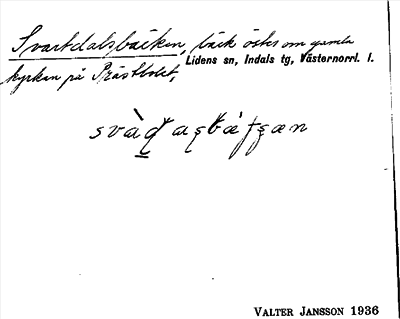 Svartdalsbäcken, bäck öster om gamla
Lidens sn, Indals tg, Västernorrl. l.
kyrkan på Prästbolet,
VALTER JANSSON 1936